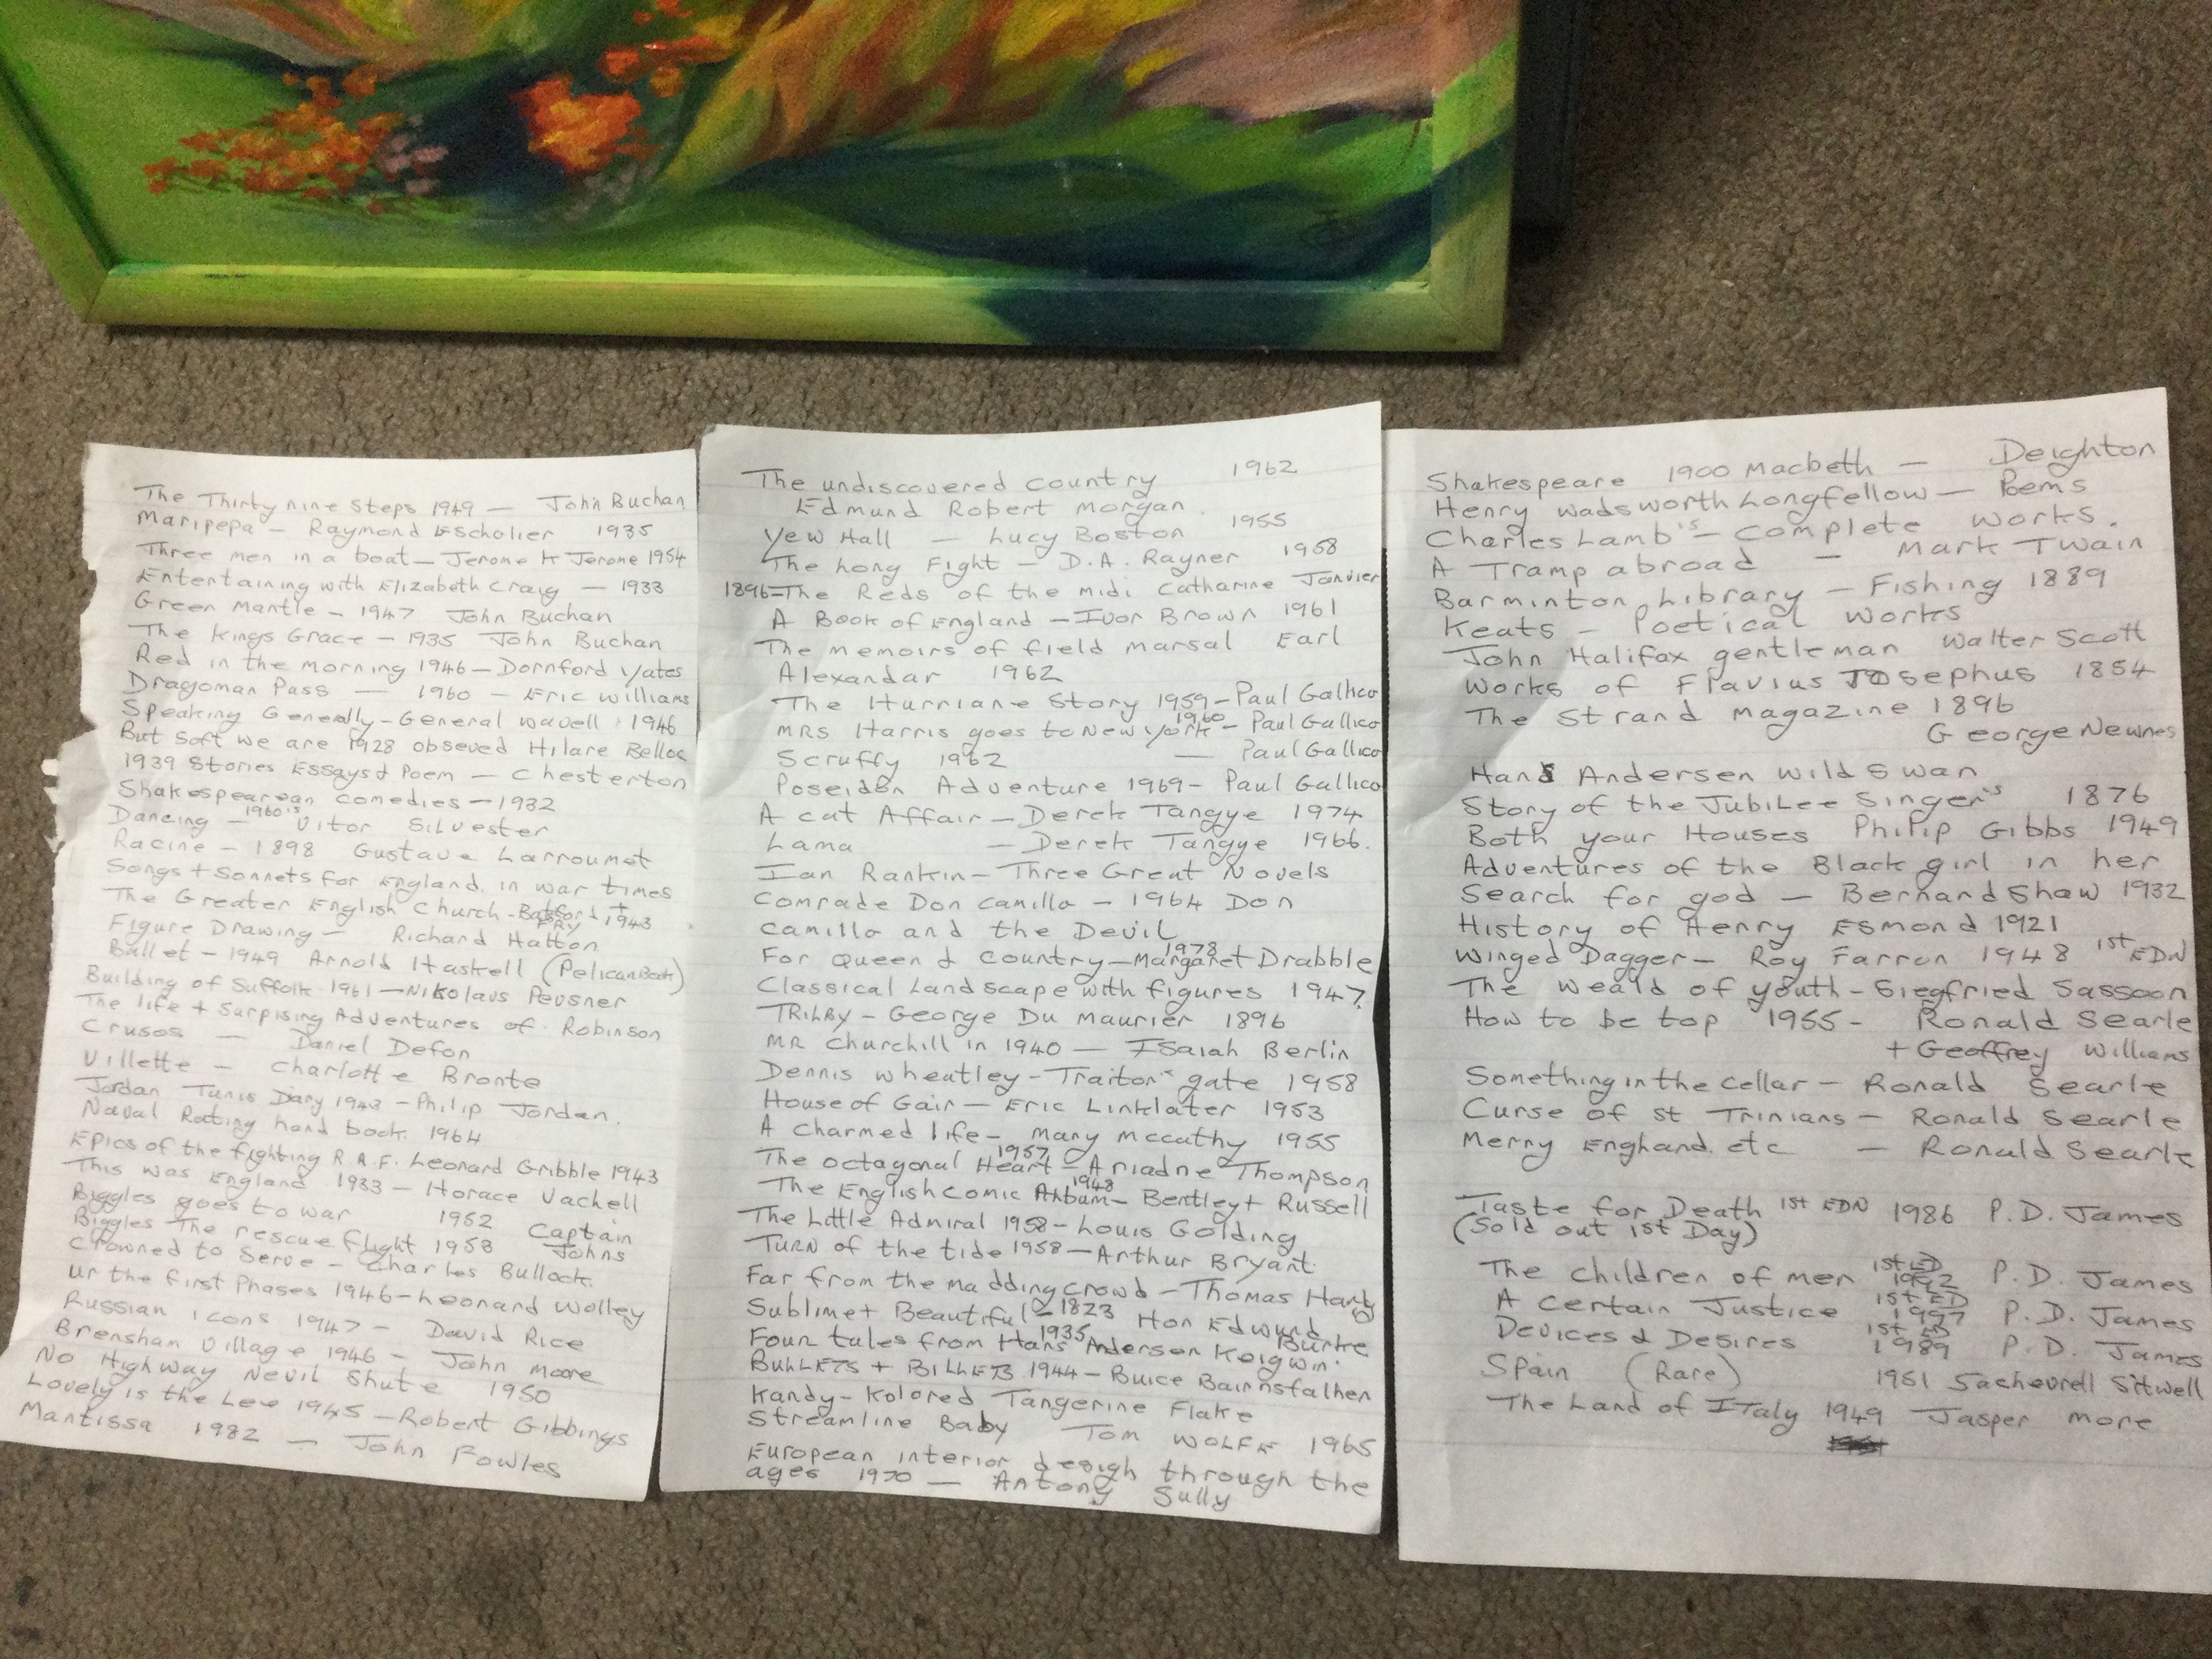 The Thirty nine Steps 1949 — John Buchan
Maripepa — Raymond Escholier 1935
Three men in a boat — Jerome K Jerome 1954
Entertaining with Elizabeth Craig — 1933
Green Mantle — 1947 John Buchan
The Kings Grace — 1935 John Buchan
Red in the morning 1946 — Dornford Yates
Dragoman Pass — 1960 — Eric Williams
Speaking Generally — General Wavell 1946
But Soft we are 1928 obseved Hilare Belloc
1939 Stories Essays & Poem — Chesterton
Shakespearean comedies — 1932
Dancing — 1960's Vitor Silvester
Racine — 1898 Gustave Larroumet
Songs + Sonnets for England in war times
The Greater English Church - Batsford + Fry 1943
Figure Drawing — Richard Hatton
Ballet - 1949 Arnold Haskell (Pelican Book)
Building of Suffolk 1961 — Nikolaus Pevsner
The life + Surpising Adventures of Robinson
Crusos — Daniel Defon
Villette — Charlotte Bronte
Jordan Tunis Diary 1943 - Philip Jordan.
Naval Rating hand book 1964
Epics of the fighting R.A.F. Leonard Gribble 1943
This was England 1933 — Horace Vachell
Biggles goes to war 1952 Captain
Biggles The rescue flight 1953 Johns
Crowned to Serve — Charles Bullock
Ur the first Phases 1946 — Leonard Wolley
Russian icons 1947 — David Rice
Brensham Village 1946 — John Moore
No Highway Nevil Shute 1950
Lovely is the Lee 1945 — Robert Gibbings
Mantissa 1982 — John Fowles
The undiscovered country 1962
Edmund Robert Morgan
Yew Hall — Lucy Boston 1955
The Long Fight — D.A. Rayner 1958
1896 — The Reds of the midi Catharine Janvier
A Book of England — Ivor Brown 1961
The memoirs of field marsal Earl
Alexandar 1962
The Hurriane Story 1959 — Paul Gallico
MRS Harris goes to New York 1960 — Paul Gallico
Scruffy 1962 — Paul Gallico
Poseidon Adventure 1969 — Paul Gallico
A cat Affair — Derek Tangye 1974
Lama — Derek Tangye 1966.
Ian Rankin — Three Great Novels
Comrade Don Camillo — 1964 Don
Camillo and the Devil
For Queen & Country — 1978 Margaret Drabble
Classical Landscape with figures 1947
TRILBY — George Du Maurier 1896
MR Churchill in 1940 — Isaiah Berlin
Dennis Wheatley — Traitors gate 1958
House of Gair — Eric Linklater 1953
A charmed life — Many Mccathy 1955
The octagonal Heart 1957 — Ariadne Thompson
The English comic Album 1948 — Bentley + Russell
The Little Admiral 1958 — Louis Golding
TURN of the tide 1958 — Arthur Bryant
Far from the madding crowd — Thomas Hardy
Sublime + Beautiful — 1823 Hon Edwund Burke
Four tales from Hans Anderson 1935 Keigwin
BULLETS + BILLETS 1944 — Buice Bairnsfather
Kandy-Kolored Tangerine Flake
Streamline Baby Tom WOLFE 1965
European interior desigh through the
ages 1970 — Antony Sully
Shakespeare 1900 Macbeth — Deighton
Henry Wadsworth Longfellow — Poems
Charles Lamb's — Complete Works.
A Tramp abroad — Mark Twain
Barminton Library — Fishing 1889
Keats — Poetical Works
John Halifax gentleman Walter Scott
Works of Flavius Josephus 1854
The Strand magazine 1896
George Newnes
Hans Andersen Wild Swan
Story of the Jubilee Singer's 1876
Both your Houses Philip Gibbs 1949
Adventures of the Black girl in her
Search for god — Bernard Shaw 1932
History of Henry Esmond 1921
Winged Dagger — Roy Farron 1948 1st EDN
The Weald of youth — Siegfried Sassoon
How to be top 1955 — Ronald Searle
+ Geoffrey Williams
Something in the cellar — Ronald Searle
Curse of St Trinians — Ronald Searle
Merry England etc — Ronald Searle
Taste for Death 1st EDN 1986 P.D. James
(Sold out 1st Day)
The children of men 1st ED 1992 P.D. James
A Certain Justice 1st ED 1997 P.D. James
Devices & Desires 1st ED 1989 P.D. James
Spain (Rare) 1951 Sacheurell Sitwell
The Land of Italy 1949 Jasper More